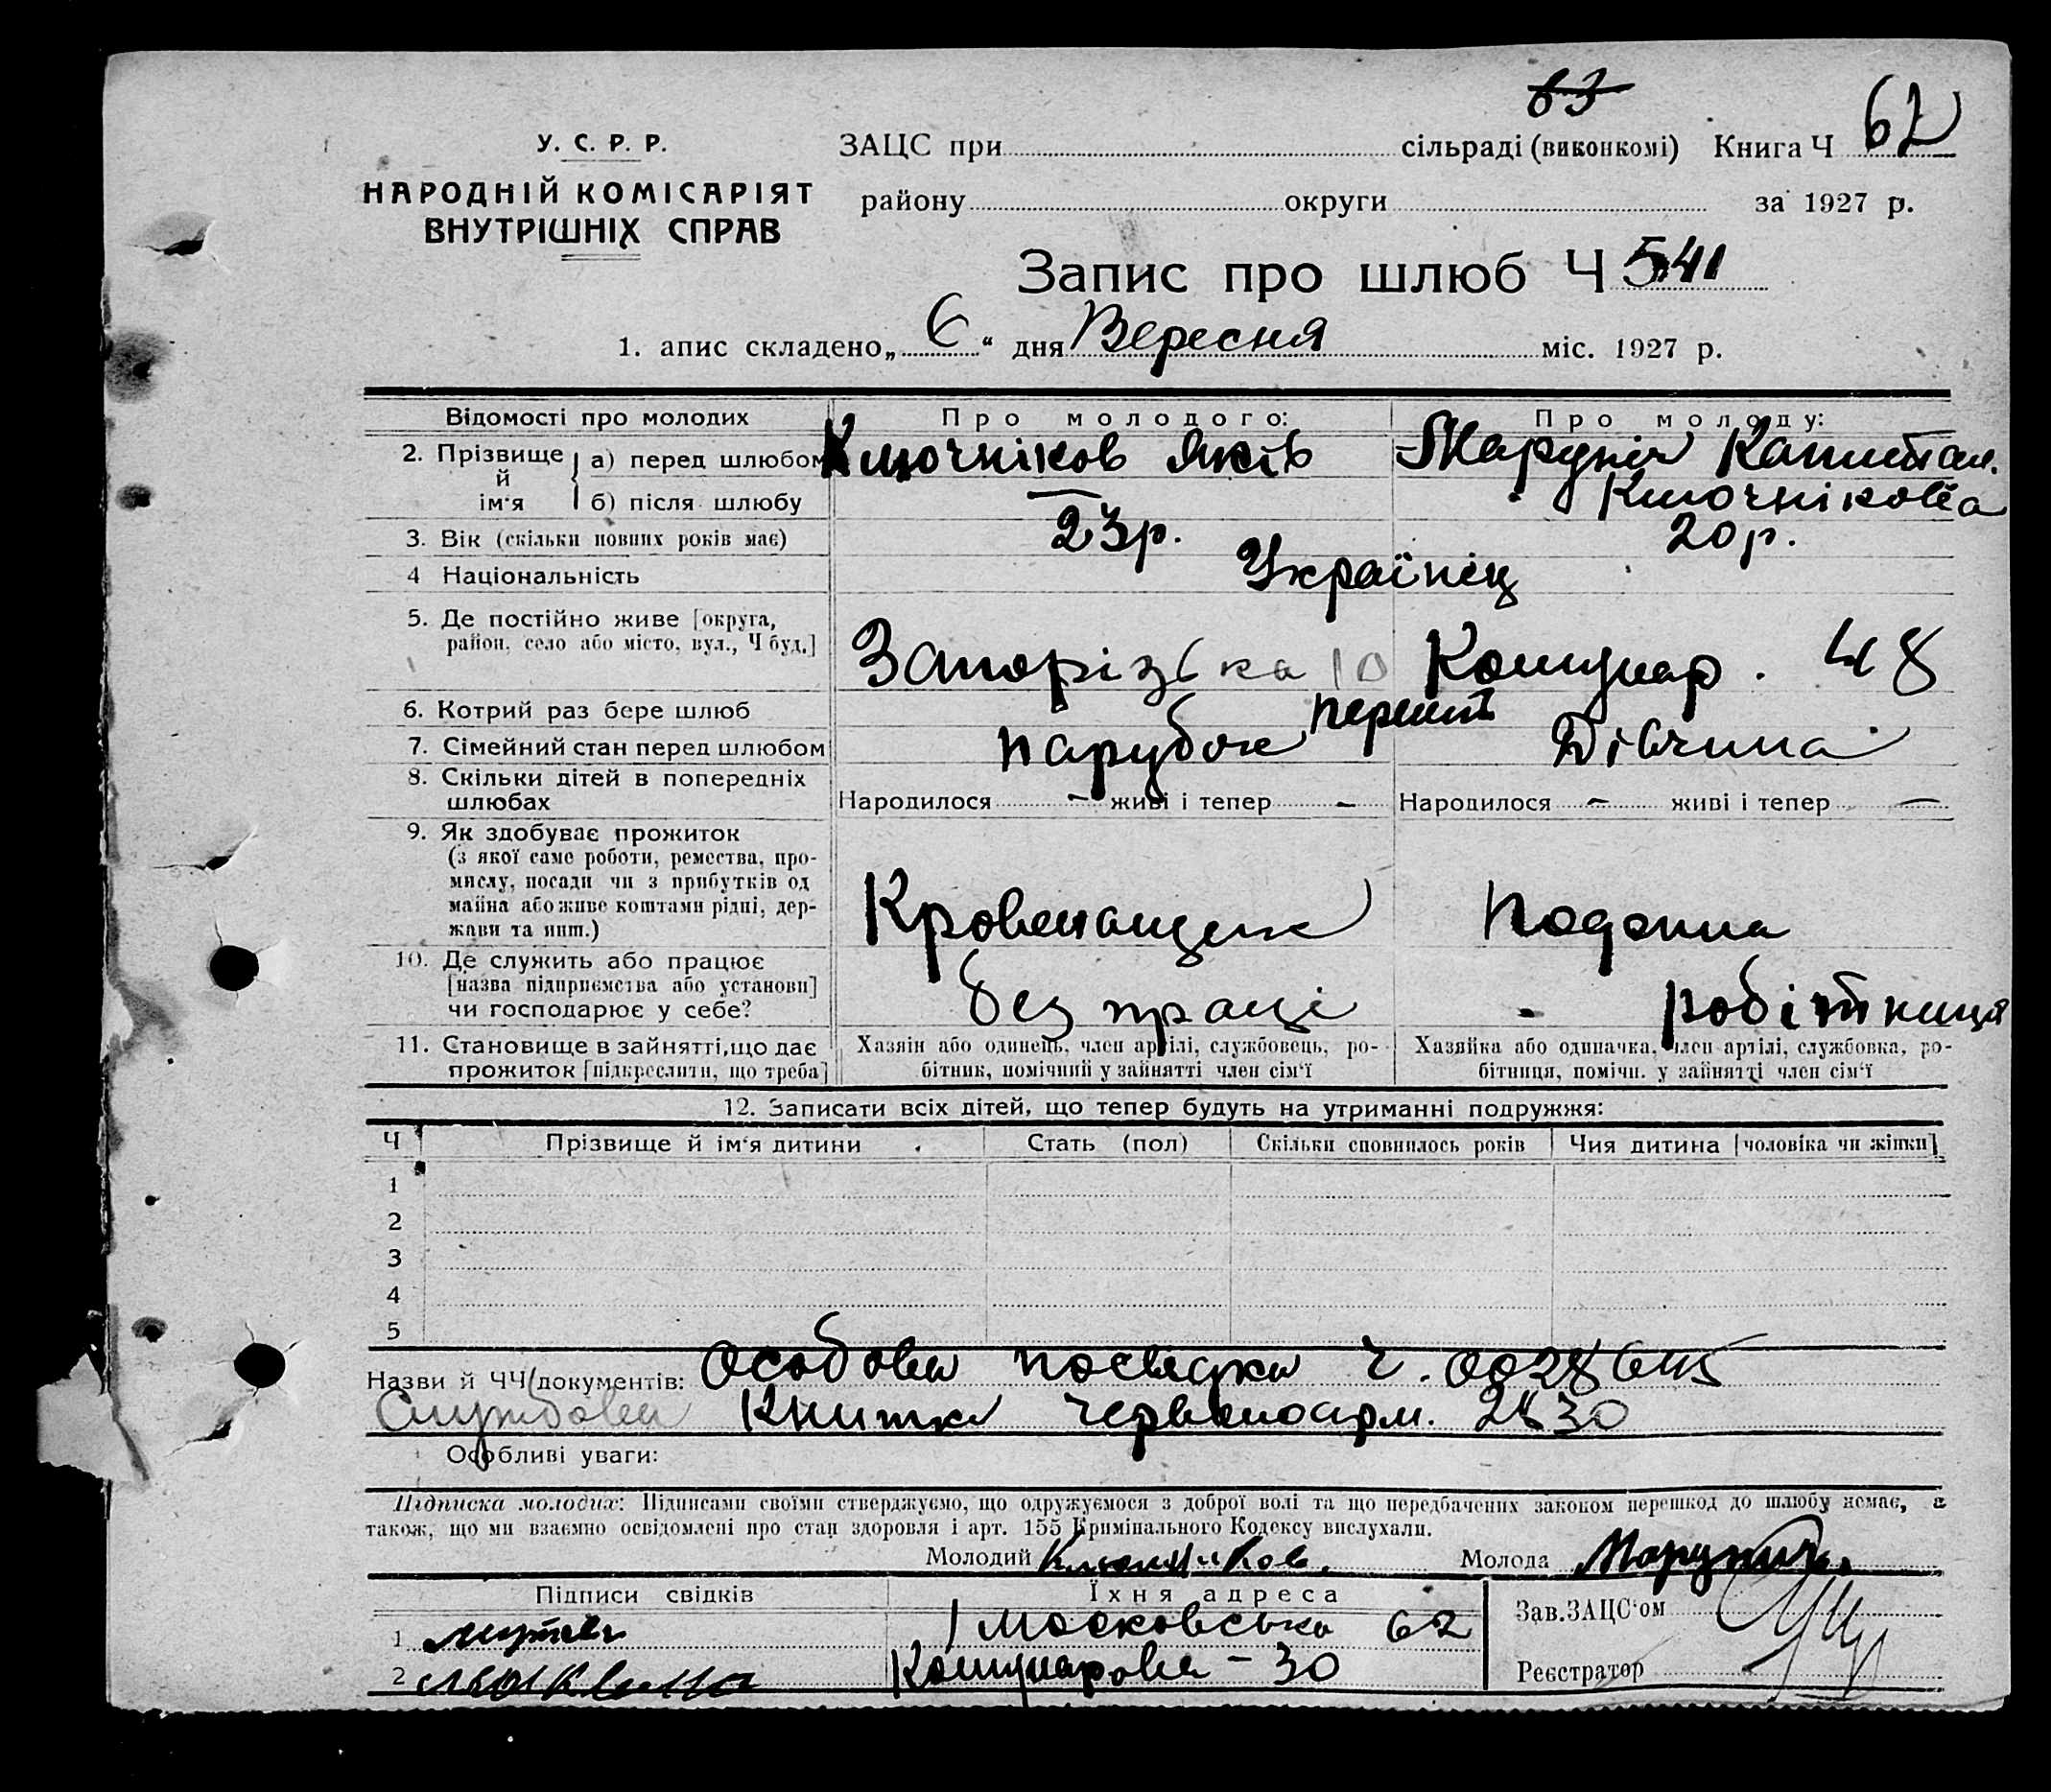 63
У. С. Р. Р.
НАРОДНІЙ КОМІСАРІЯТ
ВНУТРІШНІХ СПРАВ
ЗАЦС при сільраді (виконкомі) Книга Ч 62
району округи за 1927 р.
Запис про шлюб Ч 541
1. апис складено „ 6 “ дня Вересня міс. 1927 р.
Відомості про молодих Про молодого: Про молоду:
2. Прізвище й ім‘я а) перед шлюбом Ключніков Яків Марунич
б) після шлюбу — Ключнікова
3. Вік (скільки повних років має) 23р. 20р.
4 Національність Українец
5. Де постійно живе [округа, район, село або місто, вул., Ч буд.] Запорізька 10 Комунар. 48
6. Котрий раз бере шлюб перший
7. Сімейний стан перед шлюбом парубок Дівчина
8. Скільки дітей в попередніх шлюбах Народилося — живі і тепер — Народилося — живі і тепер —
9. Як здобуває прожиток
(з якої саме роботи, ремества, про-
мислу, посади чи з прибутків од
майна або живе коштами рідні, дер-
жави та инш.) Кровельщик Поденна
10. Де служить або працює
[назва підприємства або установи]
чи господарює у себе? без праці - робітниця
11. Становище в зайнятті, що дає
прожиток [підкреслити, що треба]
Хазяін або одинець, член артілі, службовець, ро-
бітник, помічний у зайнятті член сім‘ї
Хазяйка або одиначка, член артілі, службовка, ро-
бітниця, помічн. у зайнятті член сім‘ї
12. Записати всіх дітей, що тепер будуть на утриманні подружжя:
Ч Прізвище й ім‘я дитини Стать (пол) Скільки сповнилось років Чия дитина [чоловіка чи жінки]
1
2
3
4
5
Назви й ЧЧ документів: Особова посвідка ч. 0028645
Службова Книжка червеноарм. 2830
Особливі уваги:
Підписка молодих: Підписами своїми стверджуємо, що одружуємося з доброї волі та що передбачених законом перешкод до шлюбу немає, а
також, що ми взаємно освідомлені про стан здоровля і арт. 155 Кримінального Кодексу вислухали.
Молодий Ключников. Молода Марунич.
Підписи свідків Їхня адреса
1 Московська 62
2 Комунарова – 30
Зав.ЗАЦС‘ом
Реєстратор